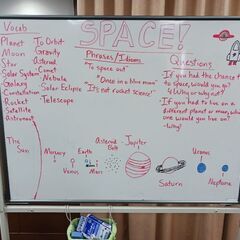 SPACE!
Vocab
Planet
Moon
Star
Solar System
Galaxy
Constellation
Rocket
Satellite
Astronaut
To Orbit
Gravity
Asteroid
Comet
Nebula
Solar Eclipse
Telescope
Phrases/Idioms
"To space out"
"Once in a blue moon"
"It's not rocket science!"
Questions
If you had the chance to go
to space, would you go?
Why or why not?
If you had to live on a
different planet or moon,
what one would it be?
-Why?
The
Sun
Mercury
Venus
Earth
Mars
Asteroid
Belt
Jupiter
Saturn
Uranus
Neptune